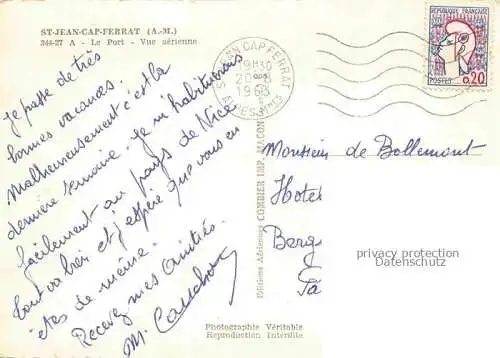 ST-JEAN-CAP-FERRAT (A.-M.)
344-27 A - Le Port - Vue aérienne
Je passe de très
bonnes vacances.
Malheureusement c'est la
dernière semaine. Je m'habituerais
facilement au pays de Nice
Tout va bien et j'espère que vous en
êtes de même.
Recevez mes amitiés.
M.
ST JEAN CAP FERRAT
9H30
20-8
1963
ALPES MMES
REPUBLIQUE FRANÇAISE
POSTES
0,20
Editions Aériennes COMBIER IMP. MACON
Monsieur de Bollemont
Hotel
Berg
privacy protection
Datenschutz
Photographie Véritable
Reproduction Interdite